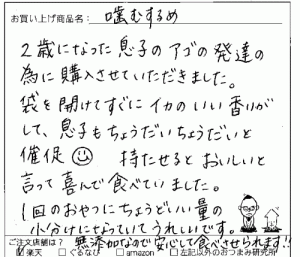 お買い上げ商品名： 噛むするめ
2歳になった息子のアゴの発達の
為に購入させていただきました。
袋を開けてすぐにイカのいい香りが
して、息子もちょうだいちょうだいと
催促 持たせるとおいしいと
言って喜んで食べていました。
1回のおやつにちょうどいい量の
小分けになっていてうれしいです。
無添加なので安心して食べさせられます!!
ご注文店舗は？
☑楽天 □ぐるなび □amazon □左記以外のおつまみ研究所